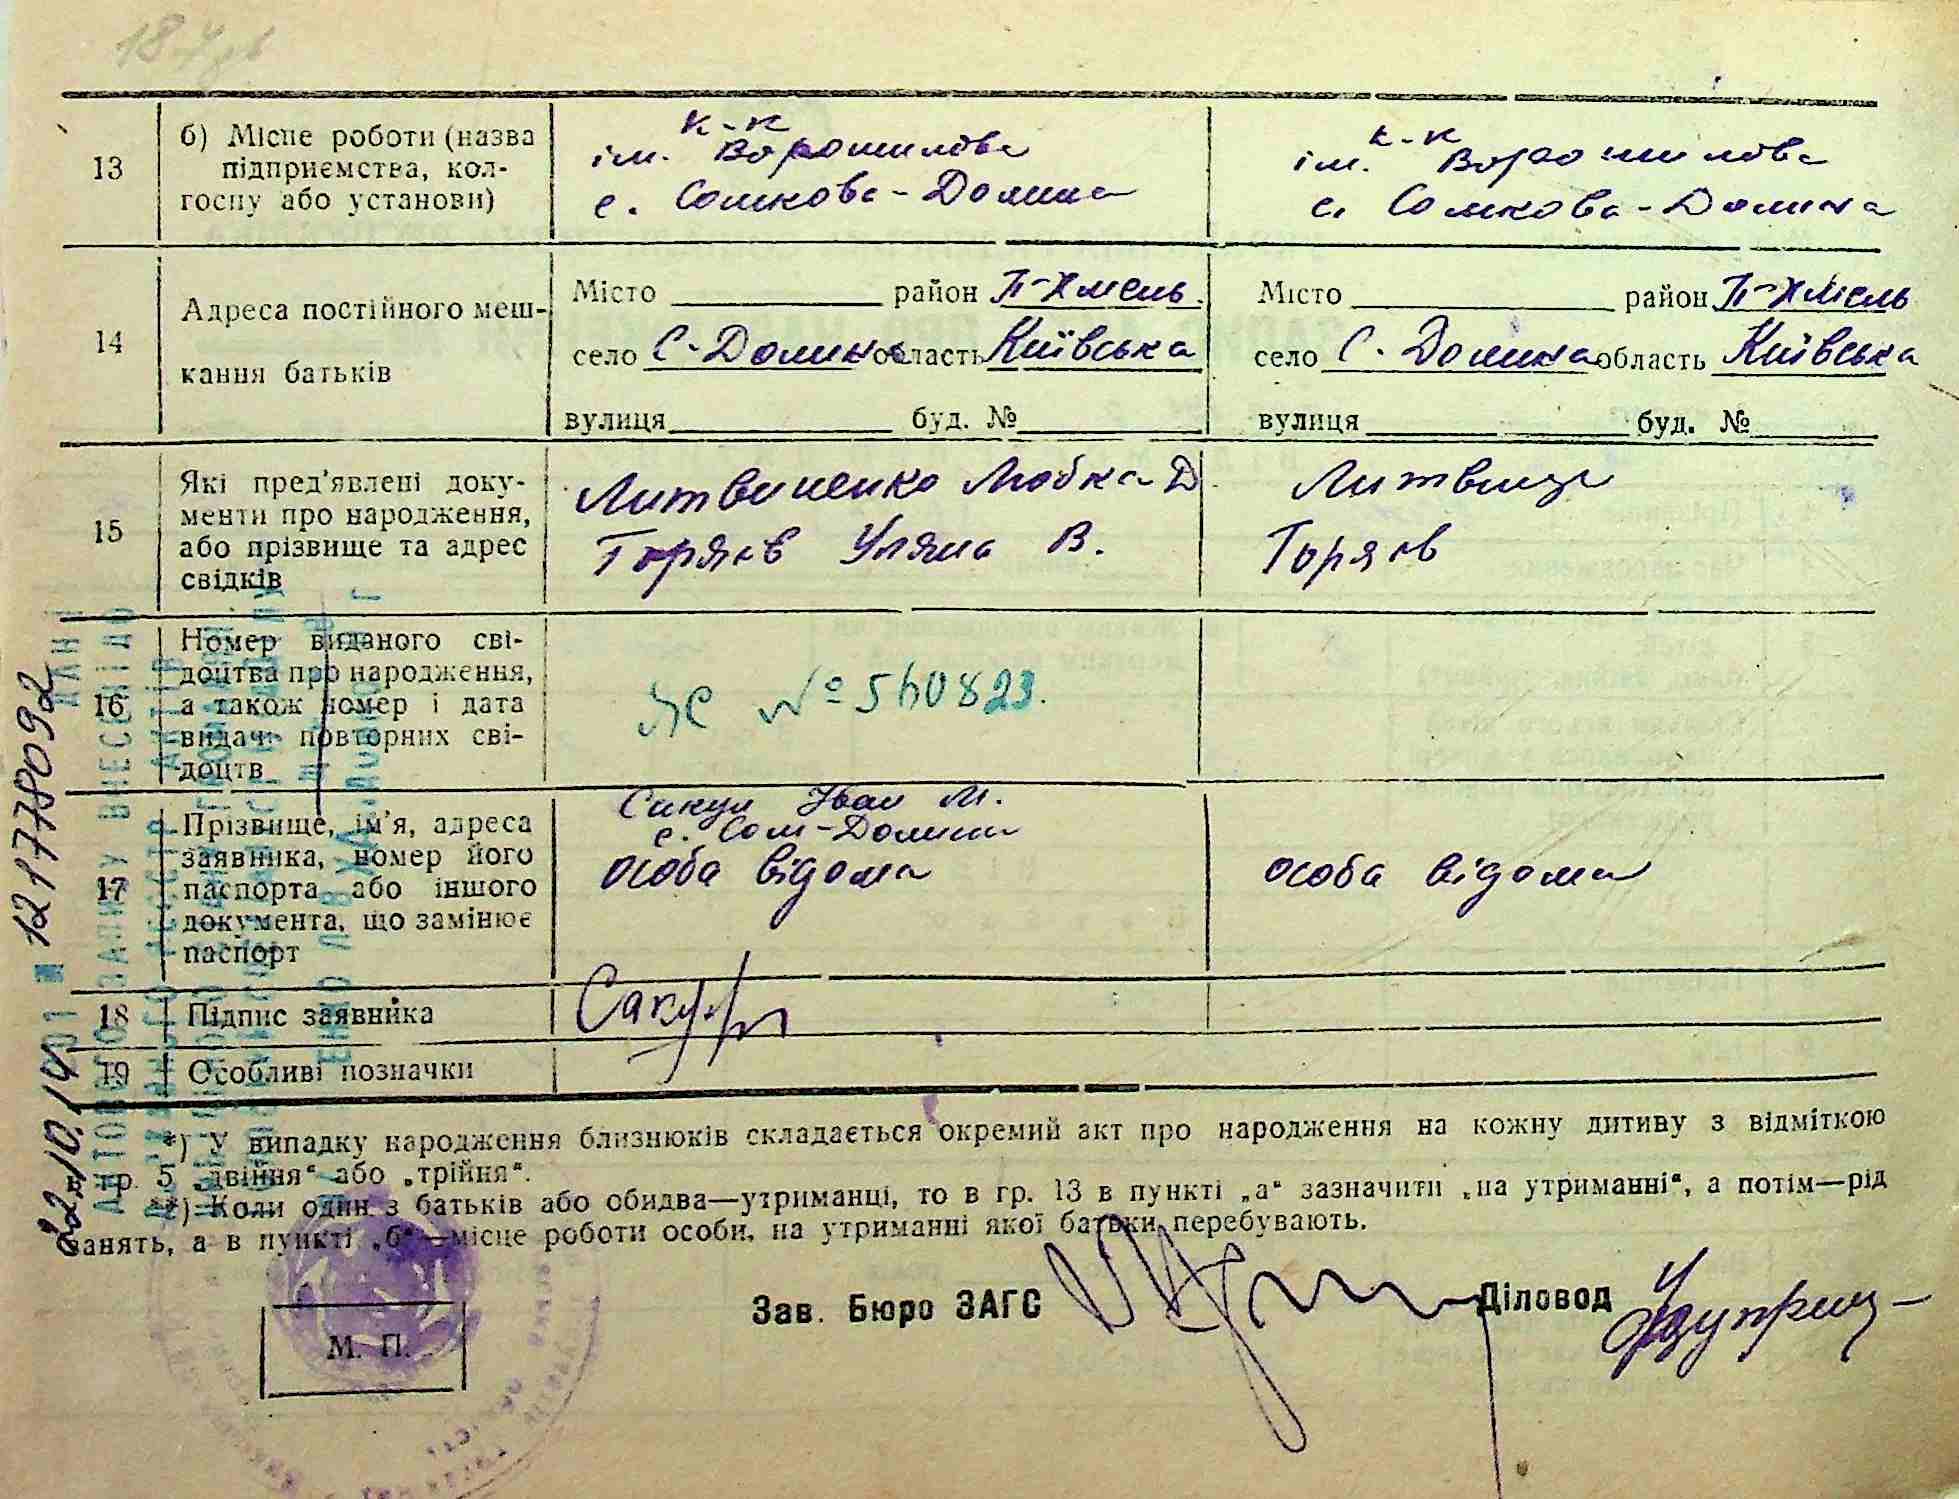 13
б) Місце роботи (назва
підприємства, кол-
госпу або установи)
к-к
ім. Ворошилова
с. Сомкова-Долина
к-к
ім. Ворошилова
с. Сомкова-Долина
14
Адреса постійного меш-
кання батьків
Місто район П-Хмель.
село С-Долина область Київська
вулиця буд. №
Місто район П-Хмель
село С. Долина область Київська
вулиця буд. №
15
Які пред'явлені доку-
менти про народження,
або прізвище та адрес
свідків
Литвиненко Любка Д.
Горяїв Уляна В.
16
Номер виданого сві-
доцтва про народження,
а також номер і дата
видачі повторних сві-
доцтв
№ 540823.
17
Прізвище, ім'я, адреса
заявника, номер його
паспорта або іншого
документа, що замінює
паспорт
Іван М.
с. Сом-Долина
особа відома
особа відома
18
Підпис заявника
19
Особливі позначки
*) У випадку народження близнюків складається окремий акт про народження на кожну дитину з відміткою
в гр. 5 „двійня“ або „трійня“.
**) Коли один з батьків або обидва—утриманці, то в гр. 13 в пункті „а“ зазначити „на утриманні“, а потім—рід
занять, а в пункті „б“—місце роботи особи, на утриманні якої батьки перебувають.
Зав. Бюро ЗАГС
Діловод
М. П.
22.10.14 № 121778092